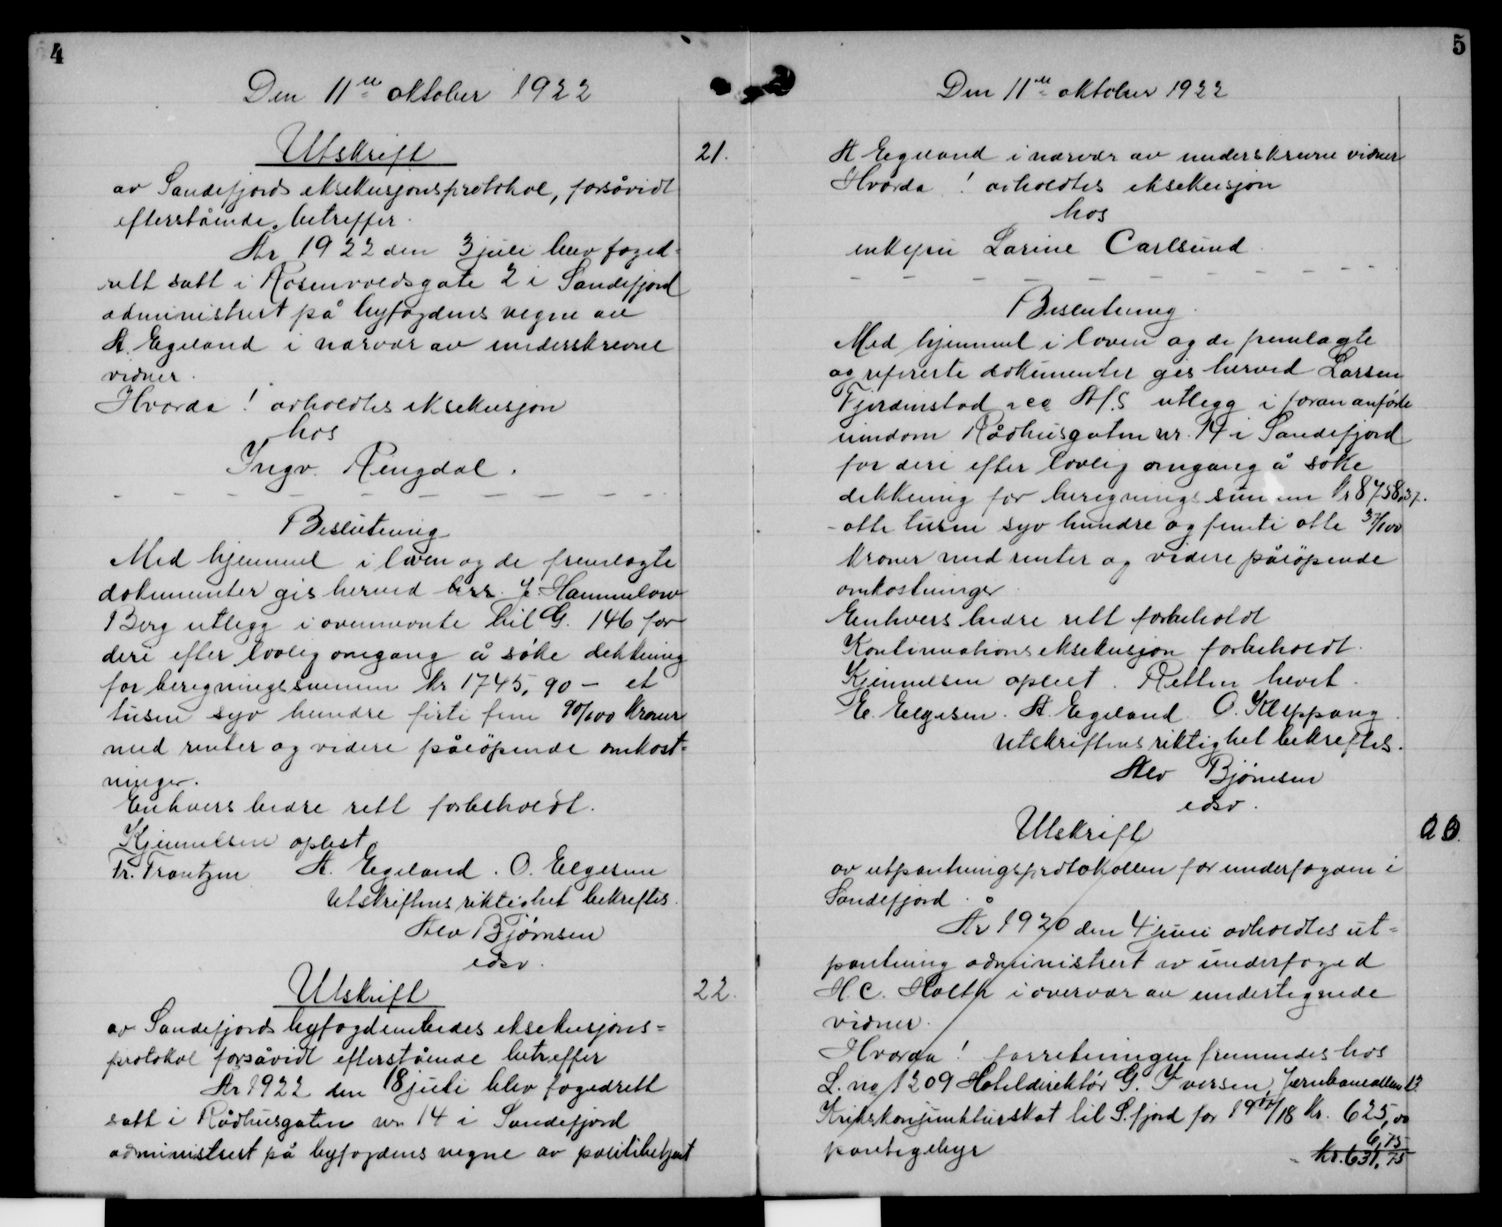 4
Den 11te oktober 1922
Utskrift
21.
av Sandefjords eksekusjonsprotokol, forsåvidt
efterstående betreffer.
År 1922 den 3 juli blev foged-
rett satt i Rosenvoldsgate 2 i Sandefjord
administrert på byfogdens vegne av
A. Egeland i nærvær av underskrevne
vidner.
Hvorda! avholdtes eksekusjon
hos
Ingv. Rengdal.
Beslutning
Med hjemmel i loven og de fremlagte
dokumenter gis herved hrr. J. Hammelow
Berg utlegg i ovennevnte bil G. 146 for
deri efter lovlig omgang å søke dekkning
for beregningssummen kr 1745,90 – et
tusen syv hundre firti fem 90/100 kroner
med renter og videre påløpende omkost-
ninger.
Enhvers bedre rett forbeholdt.
Kjennelsen oplest
Fr. Frantzen A. Egeland. O. Elgesem
Utskriftens riktighet bekreftes.
Alv Bjørnsen
edsv.
Utskrift
22.
av Sandefjords byfogdembedes eksekusjons-
protokol forsåvidt efterstående betreffer
År 1922 den 18 juli blev fogedrett
satt i Rådhusgaten nr 14 i Sandefjord
administrert på byfogdens vegne av politibetjent
5
Den 11te oktober 1922
A Egeland i nærvær av underskrevne vidner
Hvorda! avholdtes eksekusjon
hos
enkefru Larine Carlsund.
Beslutning.
Med hjemmel i loven og de fremlagte
og refererte dokumenter gis herved Larsen
Fjerdenstad & co A/S utlegg i foran anførte
eiendom Rådhusgaten nr. 14 i Sandefjord
for deri efter lovlig omgang å søke
dekkning for beregningssummen kr 8758,37.
- otte tusen syv hundre og femti otte 37/100
kroner med renter og videre påløpende
omkostninger
Enhvers bedre rett forbeholdt
Kontinuationseksekusjon forbeholdt.
Kjennelsen oplest. Retten hevet.
E. Elgesen. A. Egeland O. Kleppang.
Utskriftens riktighet bekreftes.
Alv Bjørnsen
edsv.
Utskrift
av utpantningsprotokollen for underfogden i
Sandefjord.
År 1920 den 4 juni avholdtes ut-
pantning administrert av underfoged
H.C. Holth i overvær av undertegnede
vidner.
Hvorda! forretningen fremmedes hos
L. no 1209 Hoteldirektør G. Iversen Jernbanealleen 13
Krigskonjunkturskat til S.fjord for 1917/18 kr. 625,00
pantegebyr 6,75
kr. 631,75